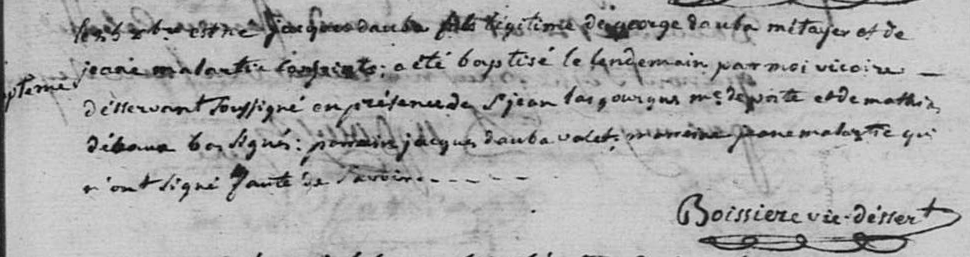 est né jacques dauba fils légitime de george dauba métayer et de
jeane malartic conjoints: a été baptisé le lendemain par moi vicaire
désservant soussigné en présence de Sr jean lasgourgues me de poste et de mathieu
bas signés: parrain jacques dauba valet, marraine jeane malartic qui
n'ont signé faute de savoir
Boissiere vic. déssert